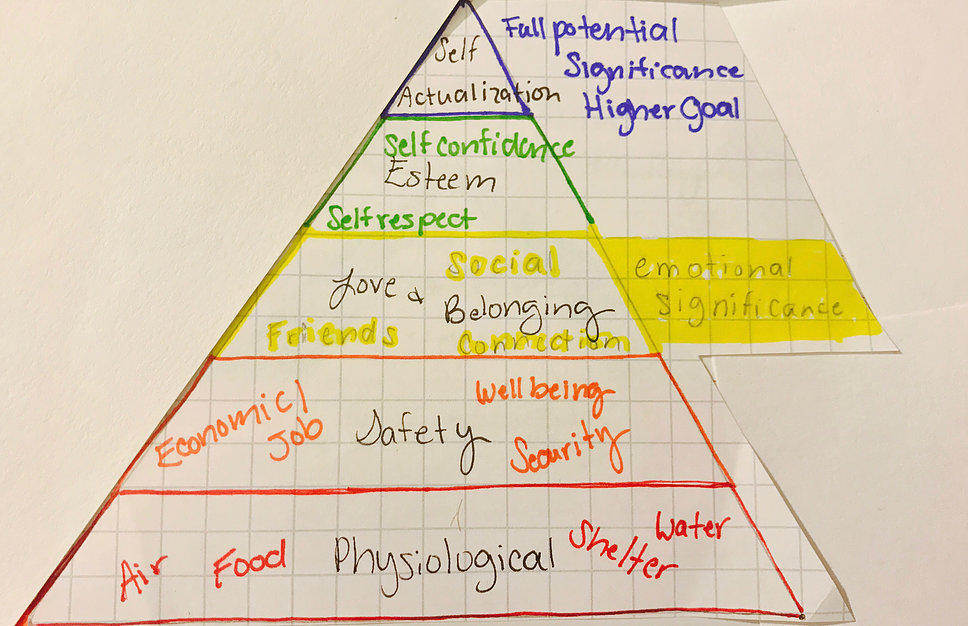 Full potential
Self
Significance
Actualization
Higher Goal
Self confidence
Esteem
Self respect
Social
emotional
Love &
Belonging
significance
Friends
Connection
Economic/
Job
Wellbeing
Safety
Security
Air
Food
Physiological
Shelter
Water